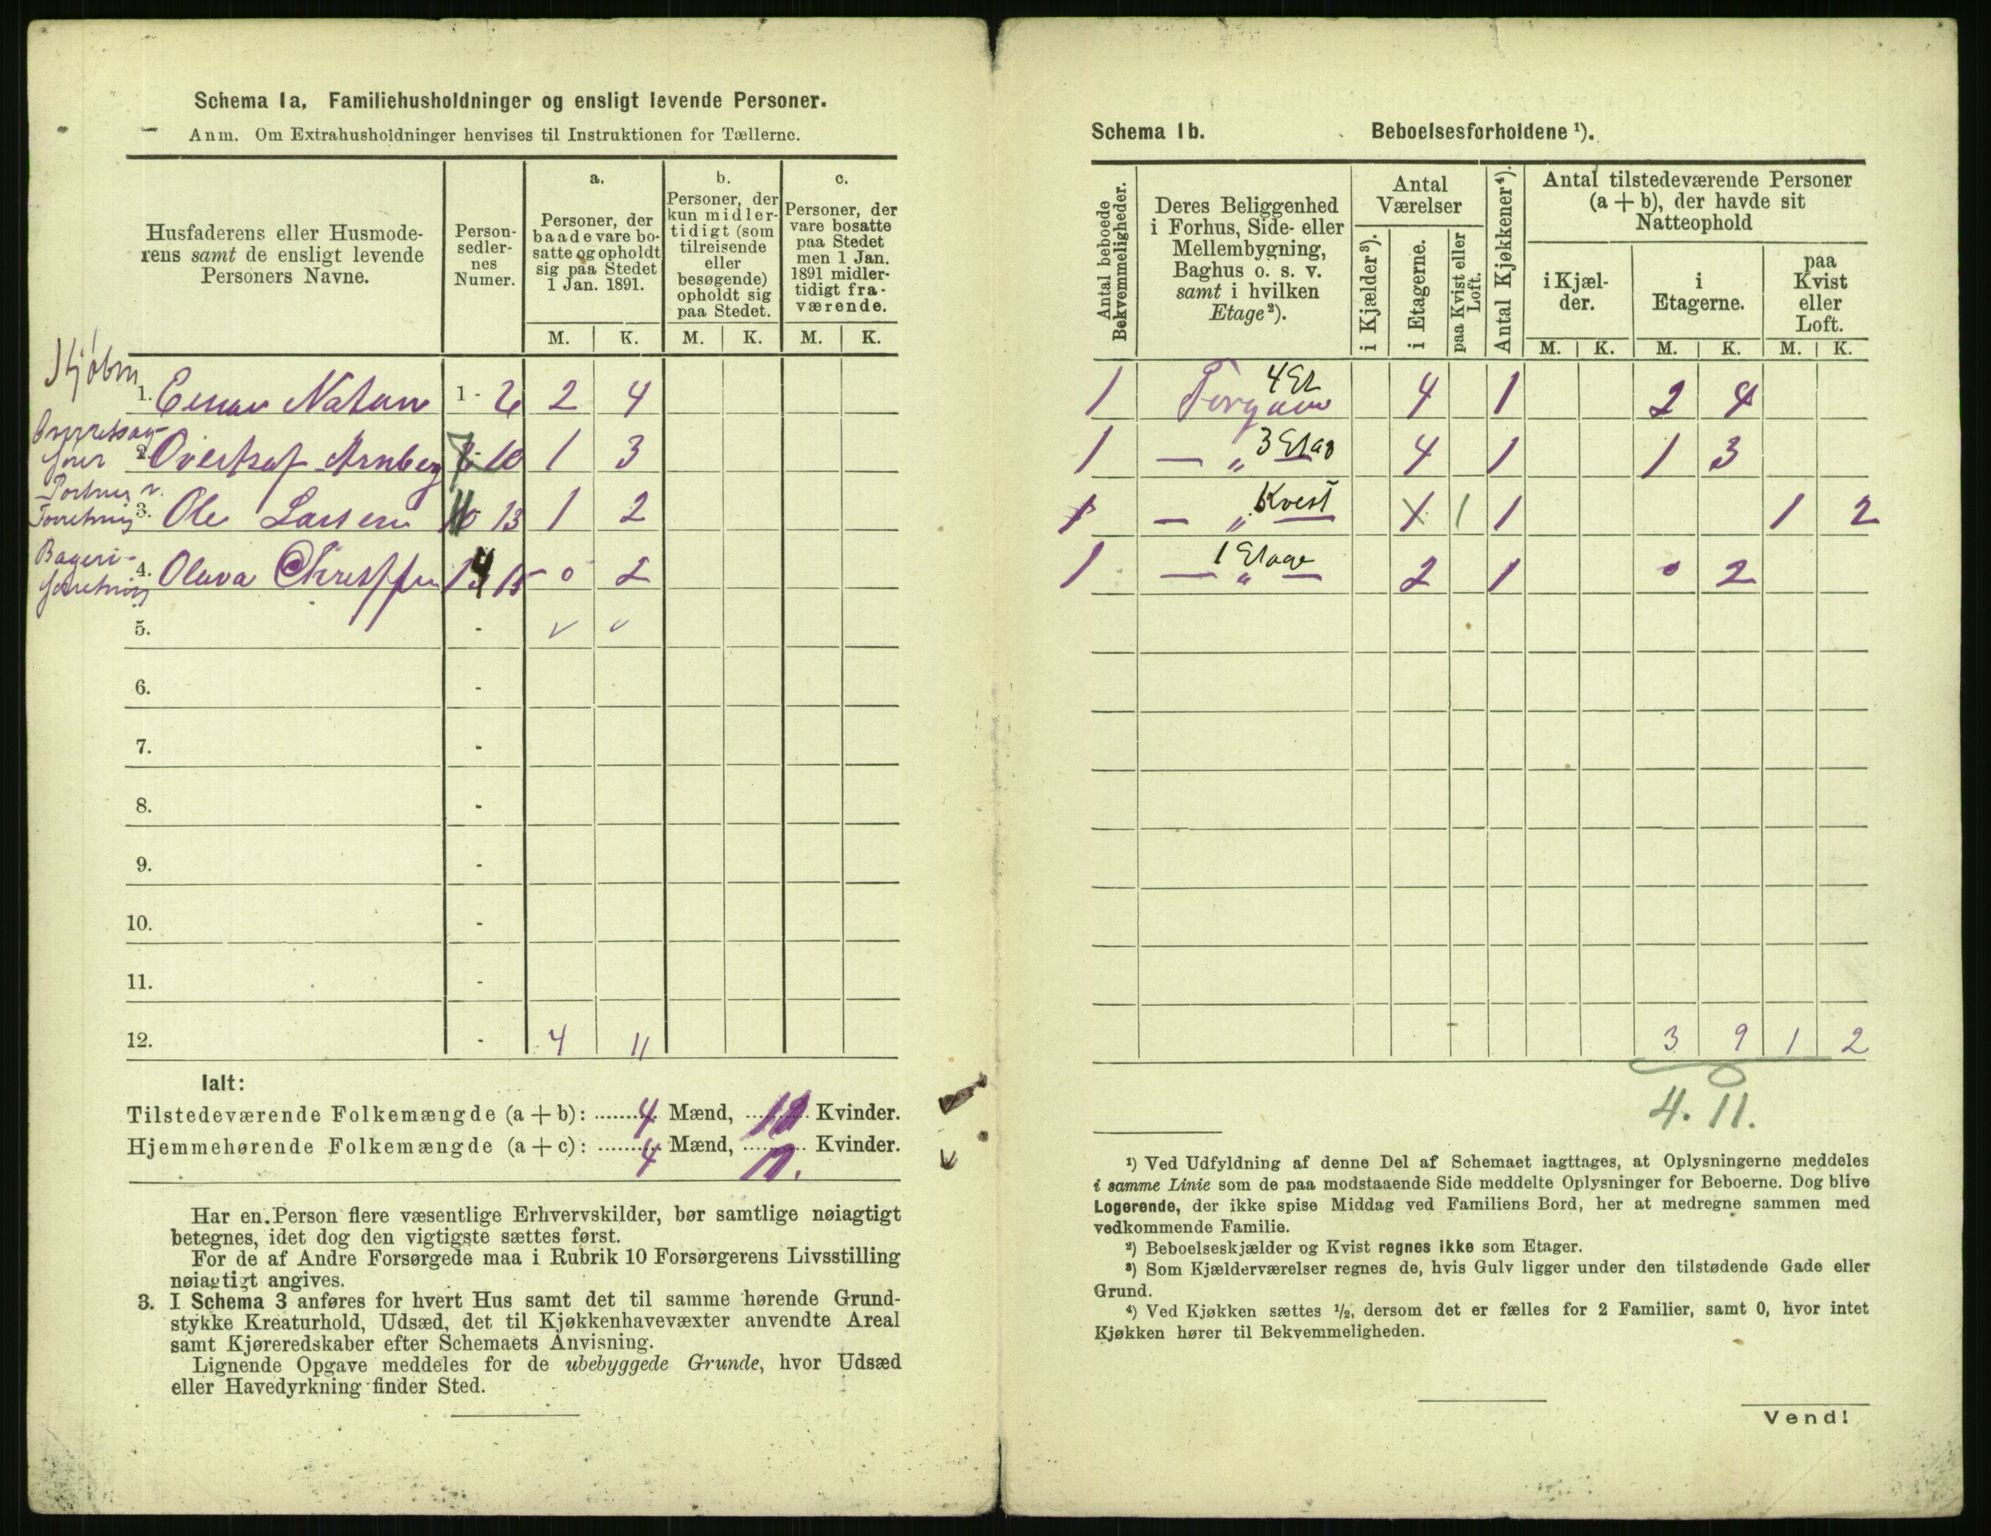 Schema 1a. Familiehusholdninger og ensligt levende Personer.
Anm. Om Extrahusholdninger henvises til Instruktionen for Tællerne.
Husfaderens eller Husmoderens samt de ensligt levende Personers Navne.
Personsedlernes Numer.
a.
Personer, der baade vare bosatte og opholdt sig paa Stedet 1 Jan. 1891.
b.
Personer, der kun midlertidigt (som tilreisende eller besøgende) opholdt sig paa Stedet.
c.
Personer, der vare bosatte paa Stedet men 1 Jan. 1891 midlertidigt fraværende.
M. K. M. K. M. K.
1. Natan 1 - 6 2 4
2. Arnberg 7 10 1 3
3. Ole Larsen 11 13 1 2
4. Olava 14 15 0 2
5. -
6. -
7. -
8. -
9. -
10. -
11. -
12. - 4 11
Ialt:
Tilstedeværende Folkemængde (a+b): 4 Mænd, Kvinder.
Hjemmehørende Folkemængde (a+c): 4 Mænd, 11. Kvinder.
Har en Person flere væsentlige Erhvervskilder, bør samtlige nøiagtigt
betegnes, idet dog den vigtigste sættes først.
For de af Andre Forsørgede maa i Rubrik 10 Forsørgerens Livsstilling
nøiagtigt angives.
3. I Schema 3 anføres for hvert Hus samt det til samme hørende Grund-
stykke Kreaturhold, Udsæd, det til Kjøkkenhavevæxter anvendte Areal
samt Kjøreredskaber efter Schemaets Anvisning.
Lignende Opgave meddeles for de ubebyggede Grunde, hvor Udsæd
eller Havedyrkning finder Sted.
Schema 1b. Beboelsesforholdene ¹).
Antal beboede Bekvemmeligheder.
Deres Beliggenhed i Forhus, Side- eller Mellembygning, Baghus o. s. v. samt i hvilken Etage²).
Antal Værelser
i Kjælder³).
i Etagerne.
paa Kvist eller Loft.
Antal Kjøkkener⁴).
Antal tilstedeværende Personer (a+b), der havde sit Natteophold
i Kjælder.
i Etagerne.
paa Kvist eller Loft.
M. K. M. K. M. K.
1 4 Et 4 1 2 4
1 — „ 3 Etag 4 1 1 3
1 — „ Kvist 1 1 1 2
1 — „ 1 Etage 2 1 0 2
3 9 1 2
4. 11.
¹) Ved Udfyldning af denne Del af Schemaet iagttages, at Oplysningerne meddeles
i samme Linie som de paa modstaaende Side meddelte Oplysninger for Beboerne. Dog blive
Logerende, der ikke spise Middag ved Familiens Bord, her at medregne sammen med
vedkommende Familie.
²) Beboelseskjælder og Kvist regnes ikke som Etager.
³) Som Kjælderværelser regnes de, hvis Gulv ligger under den tilstødende Gade eller
Grund.
⁴) Ved Kjøkken sættes ½, dersom det er fælles for 2 Familier, samt 0, hvor intet
Kjøkken hører til Bekvemmeligheden.
Vend!